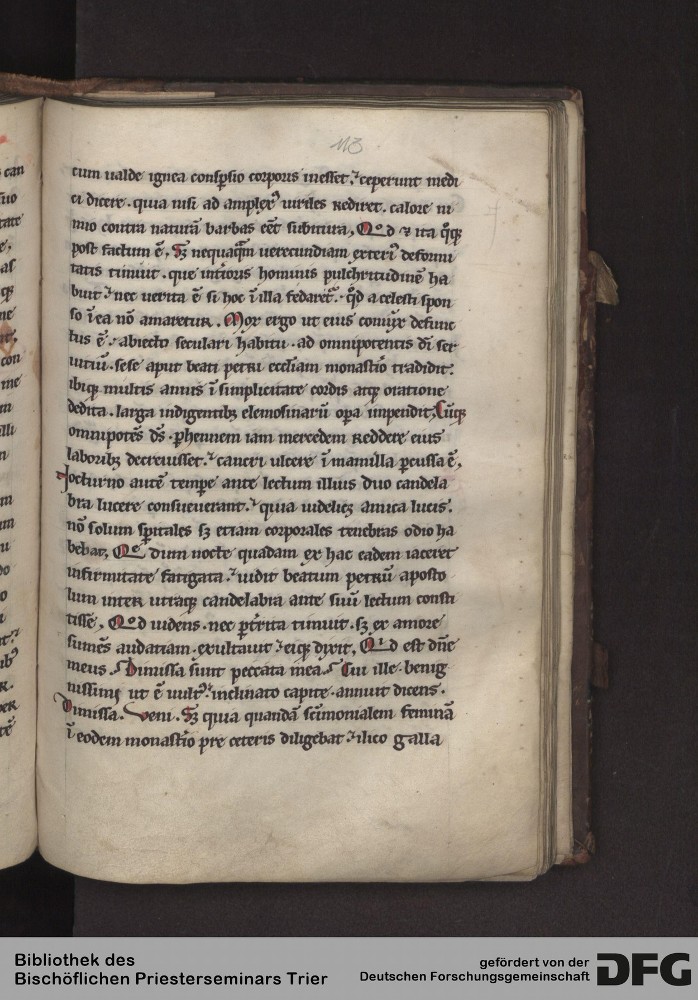 113
cum ualde ignea consp̱sio corporis inesset. ⁊ ceperunt medi
ci dicere. quia nisi ad amplexꝰ uiriles rediret. calore ni
mio contra naturā barbas eēt subitura, Qod ⁊ ita q̄ꝗ
post factum ē, Sꝫ nequaq̄m uerecundiam exteriꝰ deformi
tatis timuit. que int̄ioris hominis pulchritudinē ha
buit ⁊ nec uerita ē si hoc ī illa fedaret᷑. qͦd a celesti spon
so ī ea nō amaretur. Mox ergo ut eius coniūx defunc
tus ē. abiecto seculari habitu. ad omnipotentis dī ser
uitiū. sese aput beati petri eccl̄iam monast̄io tradidit.
ibiqꝫ multis annis ī simplicitate cordis atqꝫ oratione
dedita. larga indigentibꝫ elemosinarū op̄a impendit, Cūqꝫ
omnipotēs d̄s. ꝑhennem iam mercedem reddere eius
laboribꝫ decreuisset. ⁊ cancri ulcere ī mamilla ꝑcussa ē,
Nocturno autē temꝑe ante lectum illius duo candela
bra lucere consueuerant. ⁊ quia uidelicꝫ amica lucis.
nō solum sp̄itales sꝫ etiam corporales tenebras odio ha
bebat, Qe dum nocte quadam ex hac eadem iaceret
infirmitate fatigata. ⁊ uidit beatum petrū aposto
lum inter utraqꝫ candelabra ante suū lectum consti
tisse, Qod uidens. nec ꝑt̄rita timuit. sꝫ ex amore
sumēs audatiam. exultauit ⁊ eiqꝫ dixit, Qid est dn̄e
meus. Dimissa sunt peccata mea. Cui ille. benig
nissimꝰ ut ē uultꝰ. inclinato capite. annuit dicens.
Dimissa. Veni. Sꝫ quia quandā sc̄imonialem feminā
ī eodem monast̄io pre ceteris diligebat ⁊ ilico galla
Bibliothek des
Bischöflichen Priesterseminars Trier
gefördert von der
Deutschen Forschungsgemeinschaft
DFG